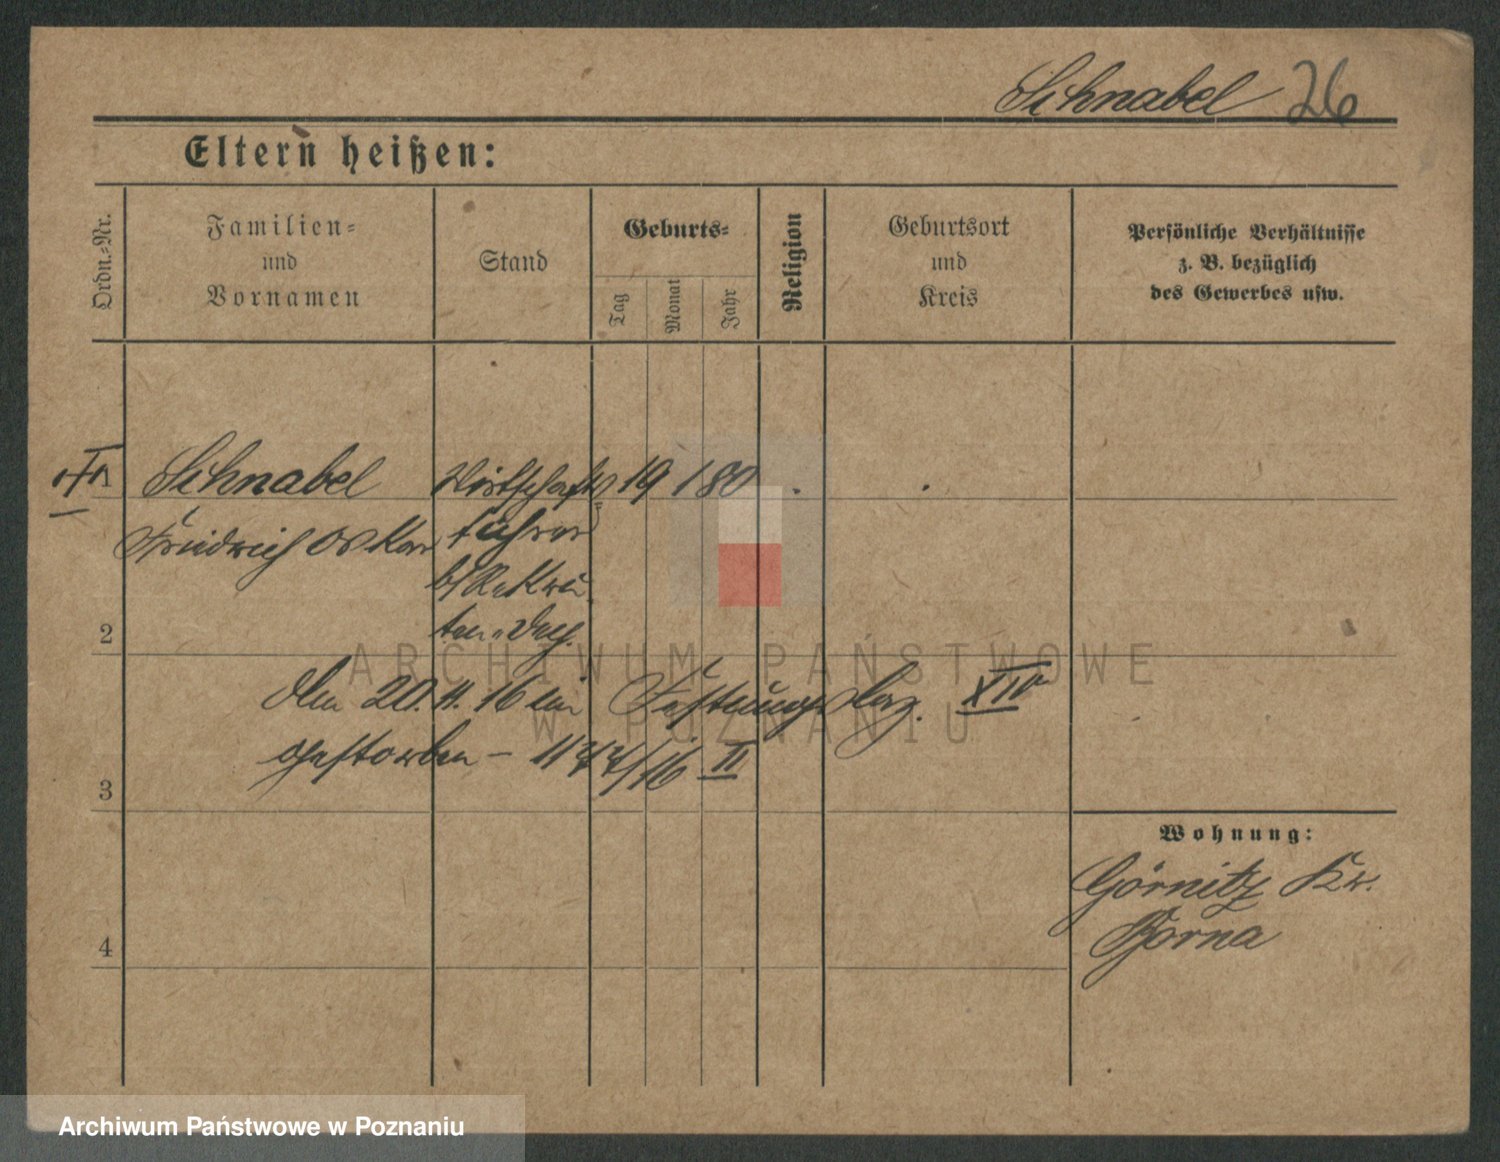 Schnabel 26
Eltern heißen:
Ordn.-Nr.
Familien-
und
Vornamen
Stand
Geburts-
Tag
Monat
Jahr
Religion
Geburtsort
und
Kreis
Persönliche Verhältnisse
z. B. bezüglich
des Gewerbes usw.
Schnabel Wirtschafts 19 1 80 . .
Friedrich Oskar führer
b/ Rekru
2 ten-
ARCHIWUM PAŃSTWOWE
W POZNANIU
Am 20.11.16 im Festungslaz. XIV
gestorben – /16 II
3
Wohnung:
Görnitz Kr.
Borna
4
Archiwum Państwowe w Poznaniu